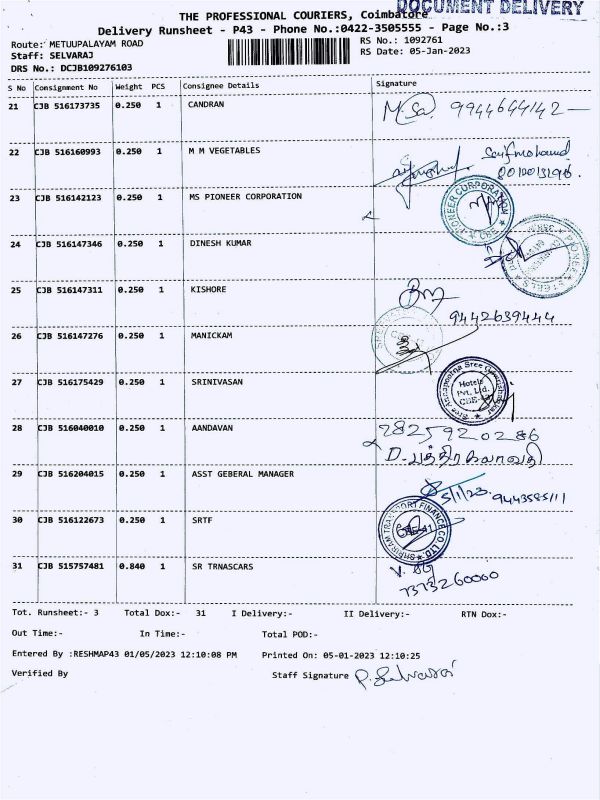 DOCUMENT DELIVERY
THE PROFESSIONAL COURIERS, Coimbatore
Delivery Runsheet - P43 - Phone No.:0422-3505555 - Page No.:3
Route: METUUPALAYAM ROAD
RS No.: 1092761
Staff: SELVARAJ
RS Date: 05-Jan-2023
DRS No.: DCJB109276103
S No Consignment No Weight PCS Consignee Details Signature
21 CJB 516173735 0.250 1 CANDRAN 9944644142
22 CJB 516160993 0.250 1 M M VEGETABLES
23 CJB 516142123 0.250 1 MS PIONEER CORPORATION
PIONEER CORPORATION CBE
24 CJB 516147346 0.250 1 DINESH KUMAR
25 CJB 516147311 0.250 1 KISHORE
9442639444
26 CJB 516147276 0.250 1 MANICKAM
27 CJB 516175429 0.250 1 SRINIVASAN
Sree Annapoorna Sree Gowrishankar Hotels Pvt. Ltd.
28 CJB 516040010 0.250 1 AANDAVAN
29 CJB 516204015 0.250 1 ASST GEBERAL MANAGER 5/1/23
30 CJB 516122673 0.250 1 SRTF
SHRIRAM TRANSPORT FINANCE CO. LTD.
31 CJB 515757481 0.840 1 SR TRNASCARS
7373260000
Tot. Runsheet:- 3 Total Dox:- 31 I Delivery:- II Delivery:- RTN Dox:-
Out Time:- In Time:- Total POD:-
Entered By :RESHMAP43 01/05/2023 12:10:08 PM Printed On: 05-01-2023 12:10:25
Verified By Staff Signature